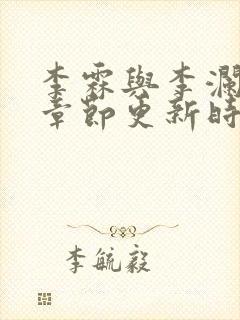 李霖與李瀾
章節更新時
李毓毅